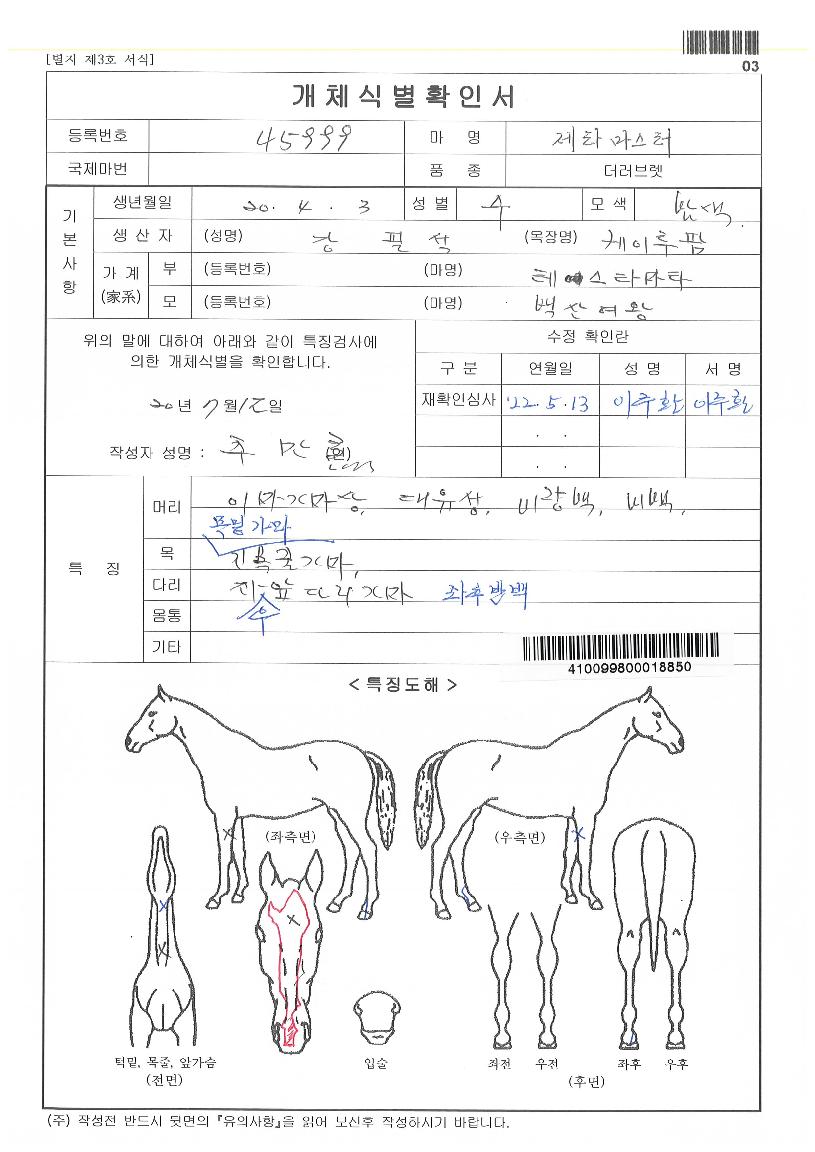 03
[별지 제3호 서식]
개체식별확인서
등록번호 45999 마 명 제타마스터
국제마번 품 종 더러브렛
기본사항
생년월일 20. 4. 3 성별 수 모색 밤색
생 산 자 (성명) 강 필 석 (목장명) 케이투팜
가 계 (家系) 부 (등록번호) (마명) 테이스타마타
모 (등록번호) (마명) 백산여왕
위의 말에 대하여 아래와 같이 특징검사에
의한 개체식별을 확인합니다.
20년 7월12일
작성자 성명 : 주 만 (인)
수정 확인란
구 분 연월일 성 명 서 명
재확인심사 '22.5.13 이주환 이주환
. .
. .
특 징
머리 이마가마상, 대유성, 비량백, 비백,
목밑가마
목 가마,
다리 앞다리가마 좌후반백
우
몸통
기타
410099800018850
< 특징도해 >
(좌측면) (우측면)
턱밑, 목줄, 앞가슴 입술 좌전 우전 좌후 우후
(전면) (후면)
(주) 작성전 반드시 뒷면의 『유의사항』을 읽어 보신후 작성하시기 바랍니다.